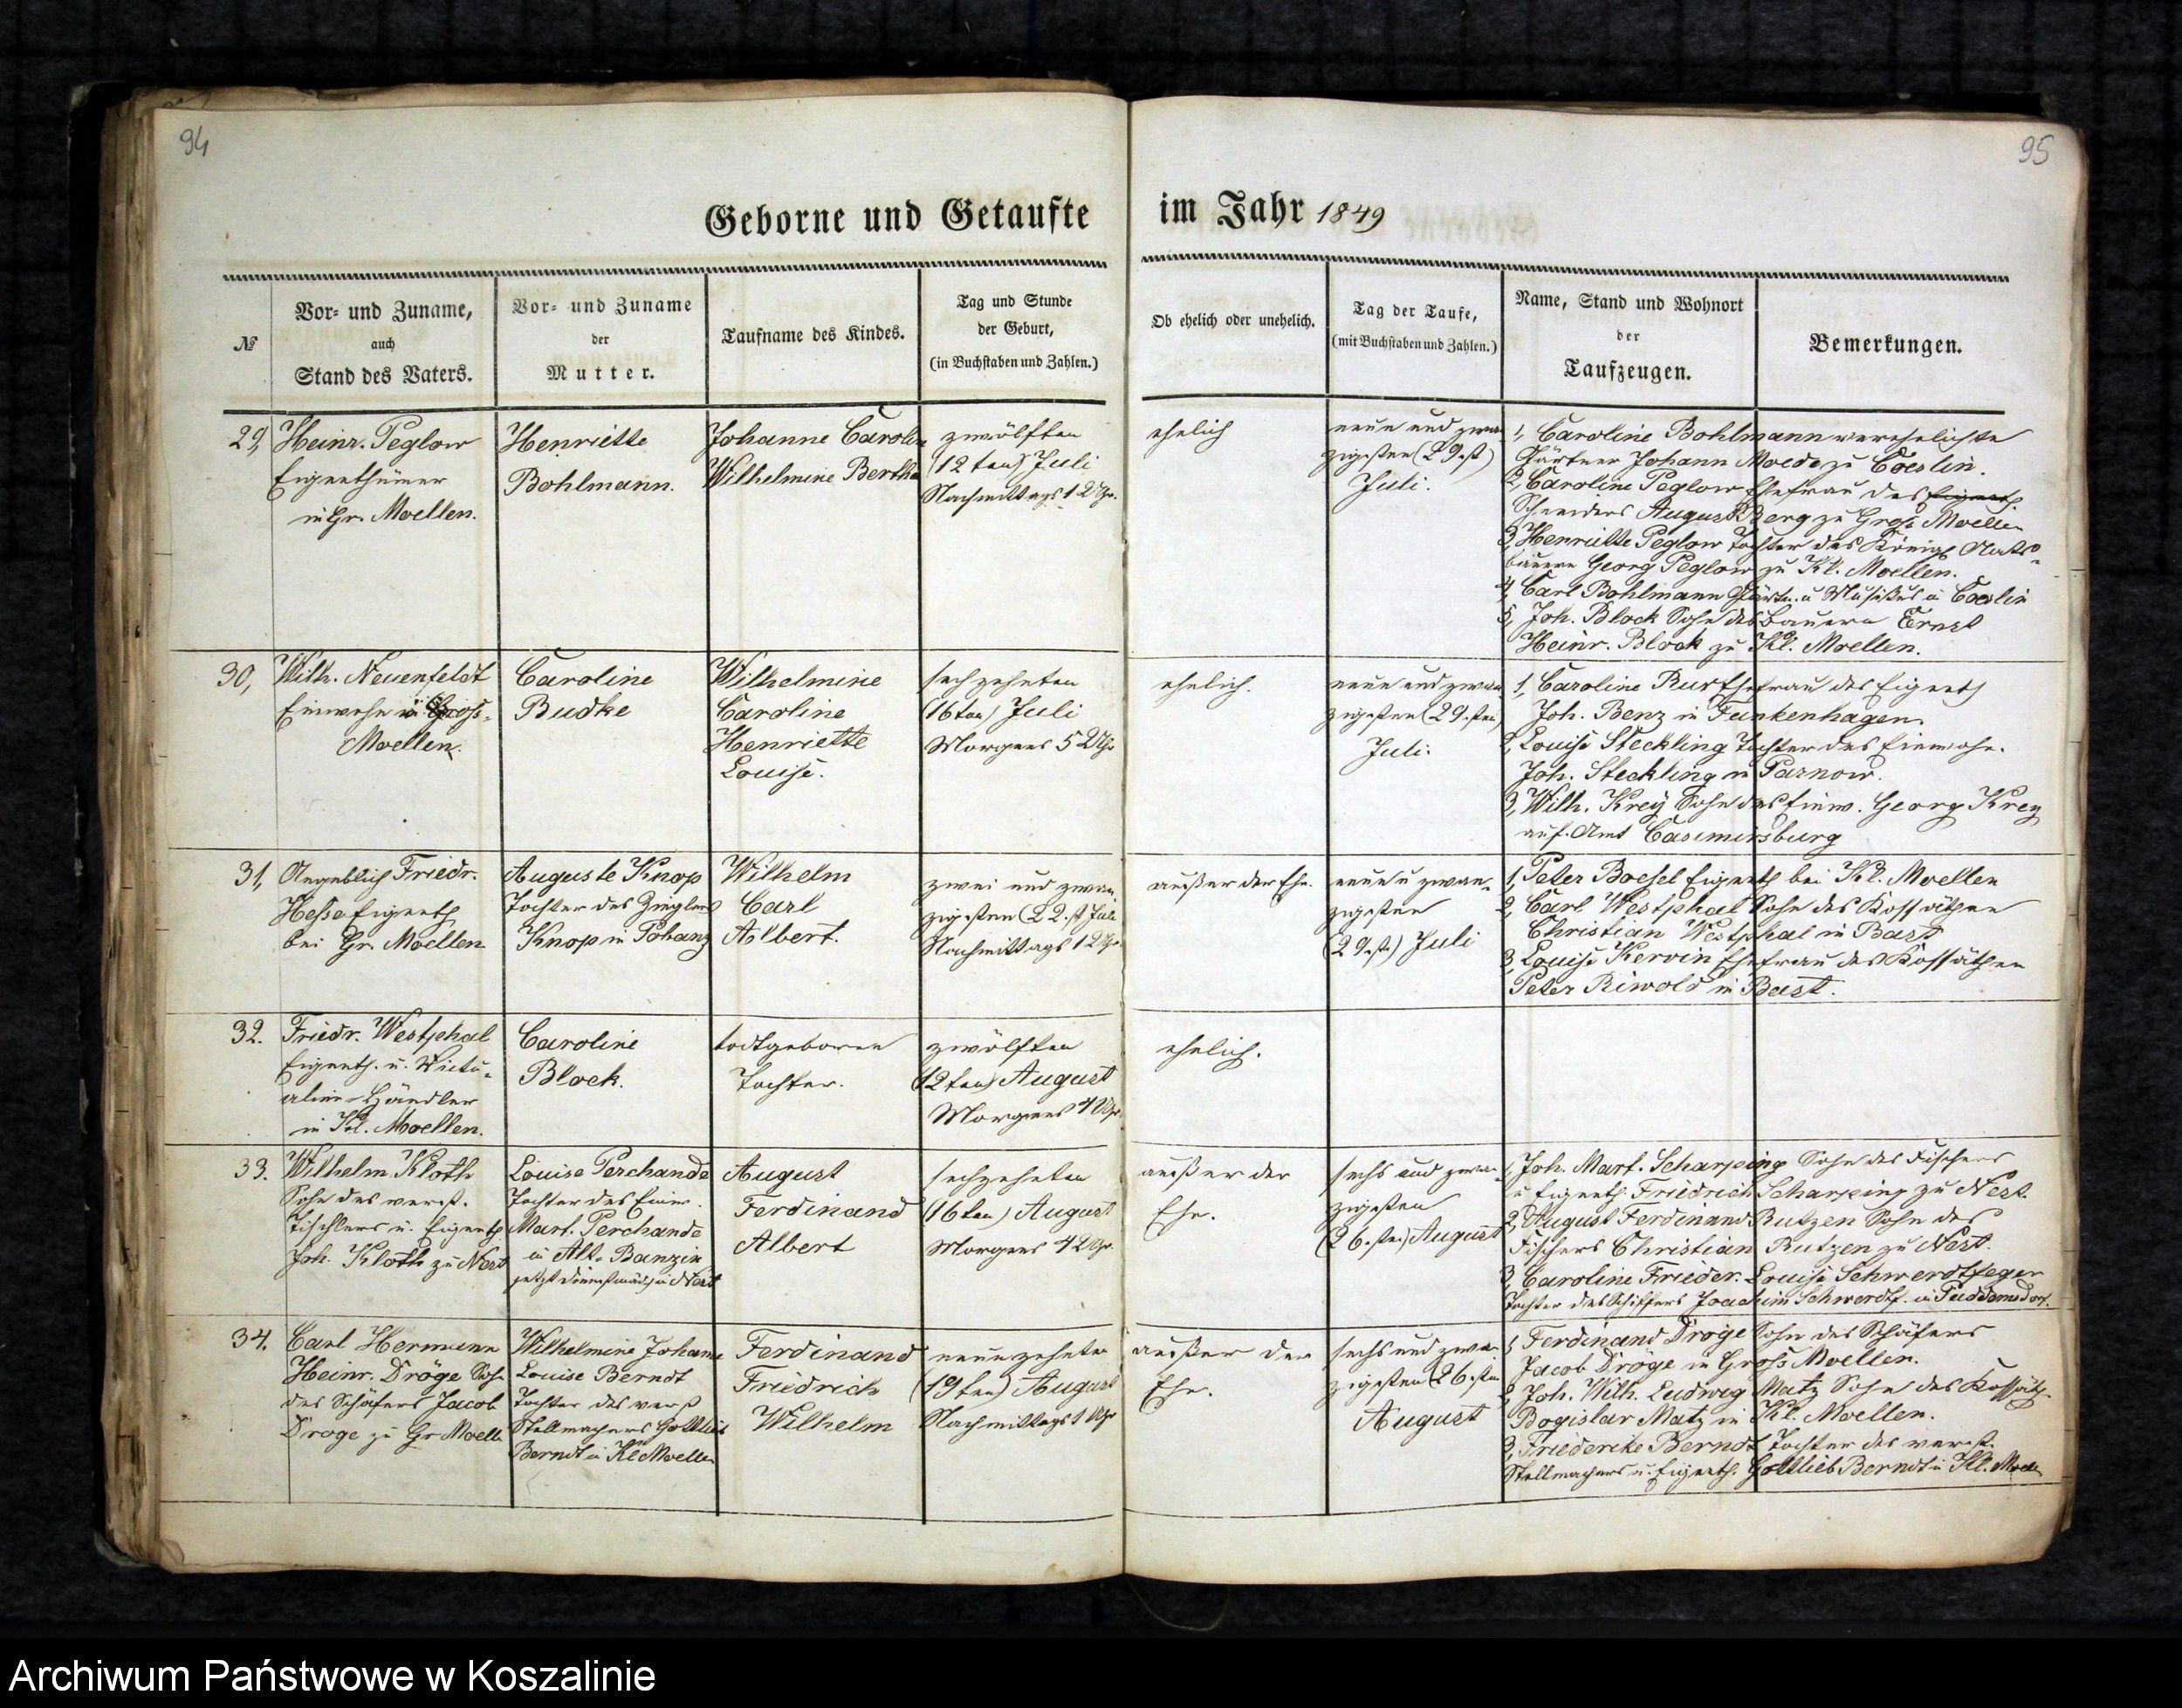 94
95
Geborne und Getaufte
im Jahr 1849
№
Vor- und Zuname,
auch
Stand des Vaters.
Vor- und Zuname
der
Mutter.
Taufname des Kindes.
Tag und Stunde
der Geburt,
(in Buchstaben und Zahlen.)
Ob ehelich oder unehelich.
Tag der Taufe,
(mit Buchstaben und Zahlen.)
Name, Stand und Wohnort
der
Taufzeugen.
Bemerkungen.
29,
Heinr. Peglow
Eigenthümer
in Gr. Moellen.
Henriette
Bohlmann.
Johanne Caroline
Wilhelmine Bertha
zwölften
(12ten) Juli
Nachmittags 12 Uhr.
ehelich
neun und zwan-
zigsten (29st)
Juli.
1, Caroline Bohlmann verehelichte
Gärtner Johann Moede zu Coeslin.
2, Caroline Peglow Ehefrau des
Schneiders August Berg zu Gross Moellen
3, Henriette Peglow Tochter des Königl.
bauern Georg Peglow zu Kl. Moellen.
4, Carl Bohlmann Gärtn. u Musikus in Coeslin
5, Joh. Block Sohn des Bauern Ernst
Heinr. Block zu Kl. Moellen.
30,
Wilh. Neuenfeldt
Einwohn in Gross-
Moellen.
Caroline
Budke
Wilhelmine
Caroline
Henriette
Louise.
sechzehnten
(16ten) Juli
Morgens 5 Uhr
ehelich.
neun und zwan-
zigsten (29sten)
Juli.
1, Caroline Ehefrau des Eigenth
Joh. Benz in Funkenhagen.
2, Louise Steckling Tochter des Einwohn.
Joh. Steckling in Parnow.
3, Wilh. Krey Sohn des Einw. Georg Krey
auf Amt Casimirsburg
31,
Angeblich Friedr.
Hesse Eigenth
bei Gr. Moellen
Auguste Knop
Tochter des Zieglers
Knop in Pohanz
Wilhelm
Carl
Albert.
zwei und zwan-
zigsten (22.st Juli
Nachmittags 12 Uhr.
außer der Ehe.
neun u zwan-
zigsten
(29st) Juli
1, Peter Boesel Eigenth bei Kl. Moellen
2, Carl Westphal Sohn des Kossäthen
Christian Westphal in Bast
3, Louise Kervin Ehefrau des Kossäthen
Peter Riwold in Bast.
32.
Friedr. Westphal
Eigenth. u. Victu-
alien-Händler
in Kl. Moellen.
Caroline
Block.
todtgeborene
Tochter.
zwölften
(12ten) August
Morgens 4 Uhr
ehelich.
33.
Wilhelm Kloth
Sohn des verst.
Tischlers u. Eigenth
Joh. Kloth zu Nest
Louise Perchande
Tochter des Einw.
Mart. Perchande
in Alt-Banzin
jetzt Dienstmädch in Nest
August
Ferdinand
Albert
sechzehnten
(16ten) August
Morgens 4 Uhr.
außer der
Ehe.
sechs und zwan-
zigsten
(26.sten) August
1, Joh. Mart. Scharping Sohn des Fischers
u Eigenth. Friedrich Scharping zu Nest.
2, August Ferdinand Rutzen Sohn des
Fischers Christian Rutzen zu Nest.
3, Caroline Frieder. Louise Schwerdtfeger
Tochter des Schiffers Joachim Schwerdtf. in Puddemsdorf.
34.
Carl Hermann
Heinr. Dröge Sohn
des Schäfers Jacob
Dröge zu Gr Moelle
Wilhelmine Johanne
Louise Berndt
Tochter des verst
Stellmachers Gottlieb
Berndt in Kl Moellen
Ferdinand
Friedrich
Wilhelm
neunzehnten
(19ten) August
Nachmittags 1 Uhr
außer der
Ehe.
sechs und zwan-
zigsten (26.sten
August
1, Ferdinand Dröge Sohn des Schäfers
Jacob Dröge in Gross Moellen.
2, Joh. Wilh. Ludwig Matz Sohn des Kossäth.
Bogislav Matz in Kl. Moellen.
3, Friederike Berndt Tochter des verst.
Stellmachers u. Eigenth. Gottlieb Berndt in Kl. Moelle
Archiwum Państwowe w Koszalinie